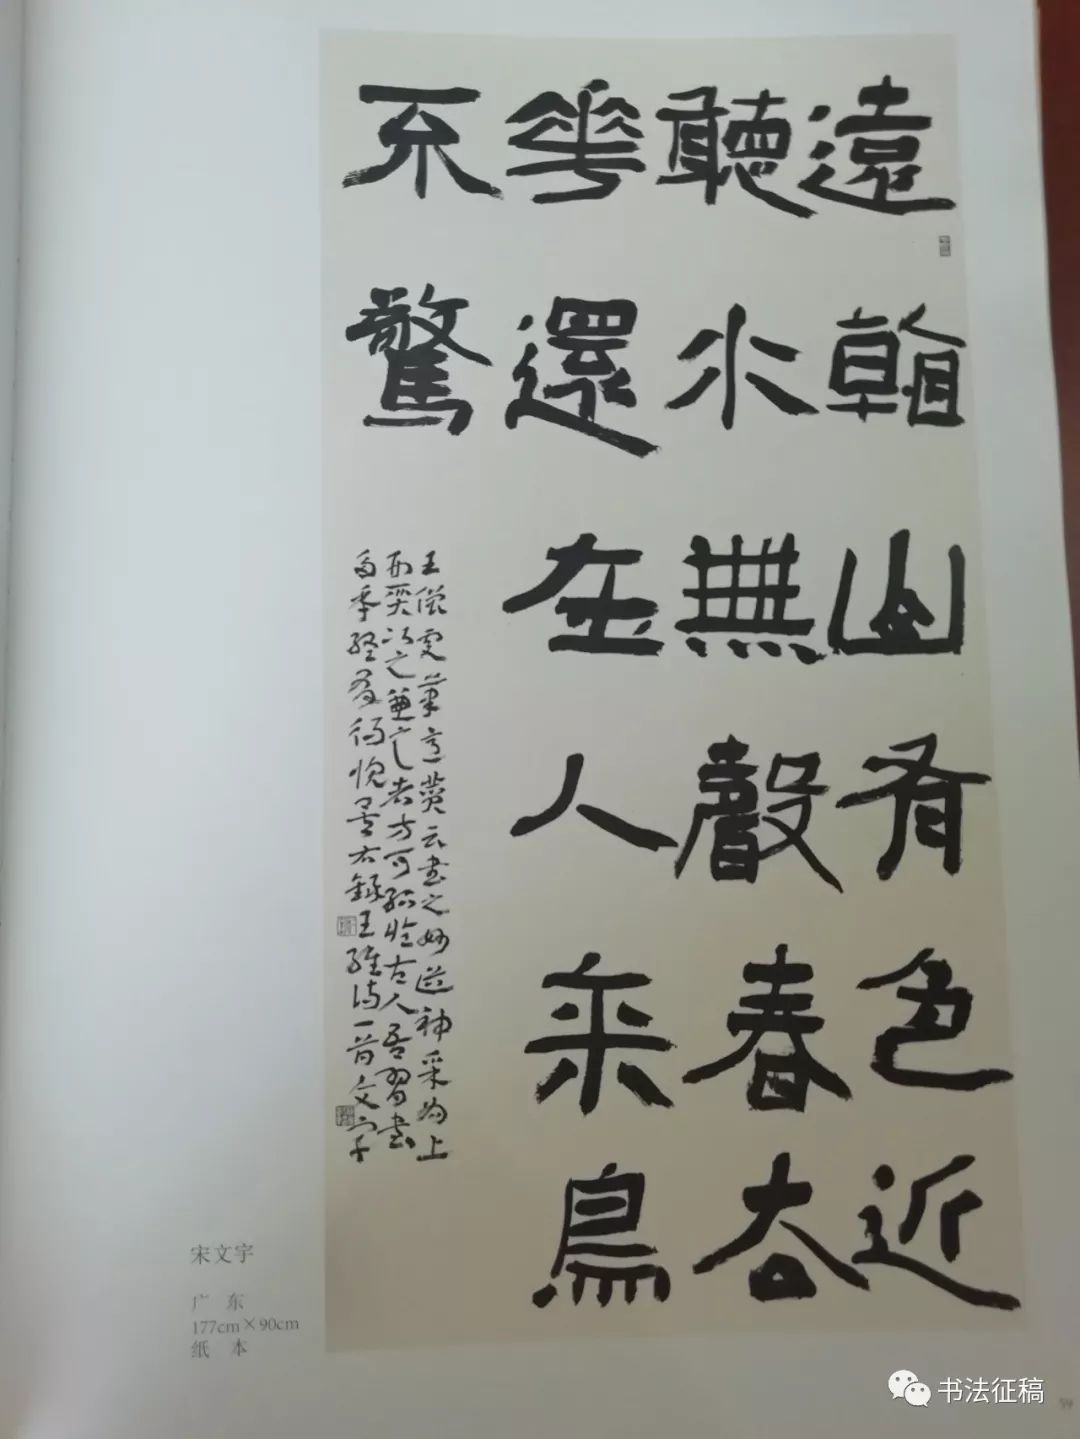 遠看山有色近
聽水無聲春去
華還在人來鳥
不驚
王僧虔筆意贊云書之妙道神采為上
形質次之兼之者方可紹於古人吾習書
多年 得愧 右錄王維詩一首文宇
宋文宇
广 东
177cm×90cm
纸 本
书法征稿
59